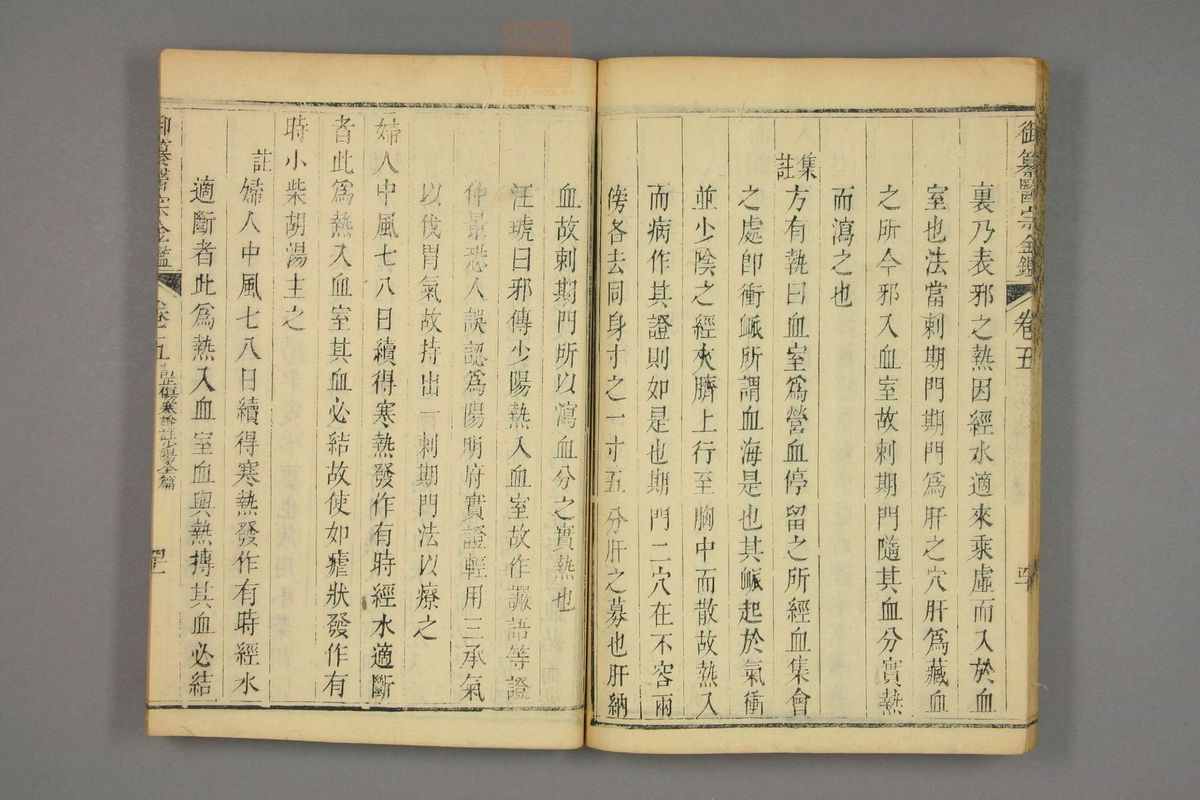 御纂醫宗金鑑 卷五
裏乃表邪之熱因經水適來乘虛而入於血
室也法當刺期門期門爲肝之穴肝爲藏血
之所今邪入血室故刺期門隨其血分實熱
而瀉之也
集註
方有執曰血室爲營血停留之所經血集會
之處卽衝䘑所謂血海是也其䘑起於氣衝
並少陰之經夾臍上行至胸中而散故熱入
而病作其證則如是也期門二穴在不容兩
傍各去同身寸之一寸五分肝之募也肝納
血故刺期門所以瀉血分之實熱也
汪琥曰邪傳少陽熱入血室故作讝語等證
仲景恐人誤認爲陽明府實證輕用三承氣
以伐胃氣故持出一刺期門法以療之
婦人中風七八日續得寒熱發作有時經水適斷
者此爲熱入血室其血必結故使如瘧狀發作有
時小柴胡湯主之
註
婦人中風七八日續得寒熱發作有時經水
適斷者此爲熱入血室血與熱摶其血必結
御纂醫宗金鑑 卷五 訂正傷寒論註少陽全篇